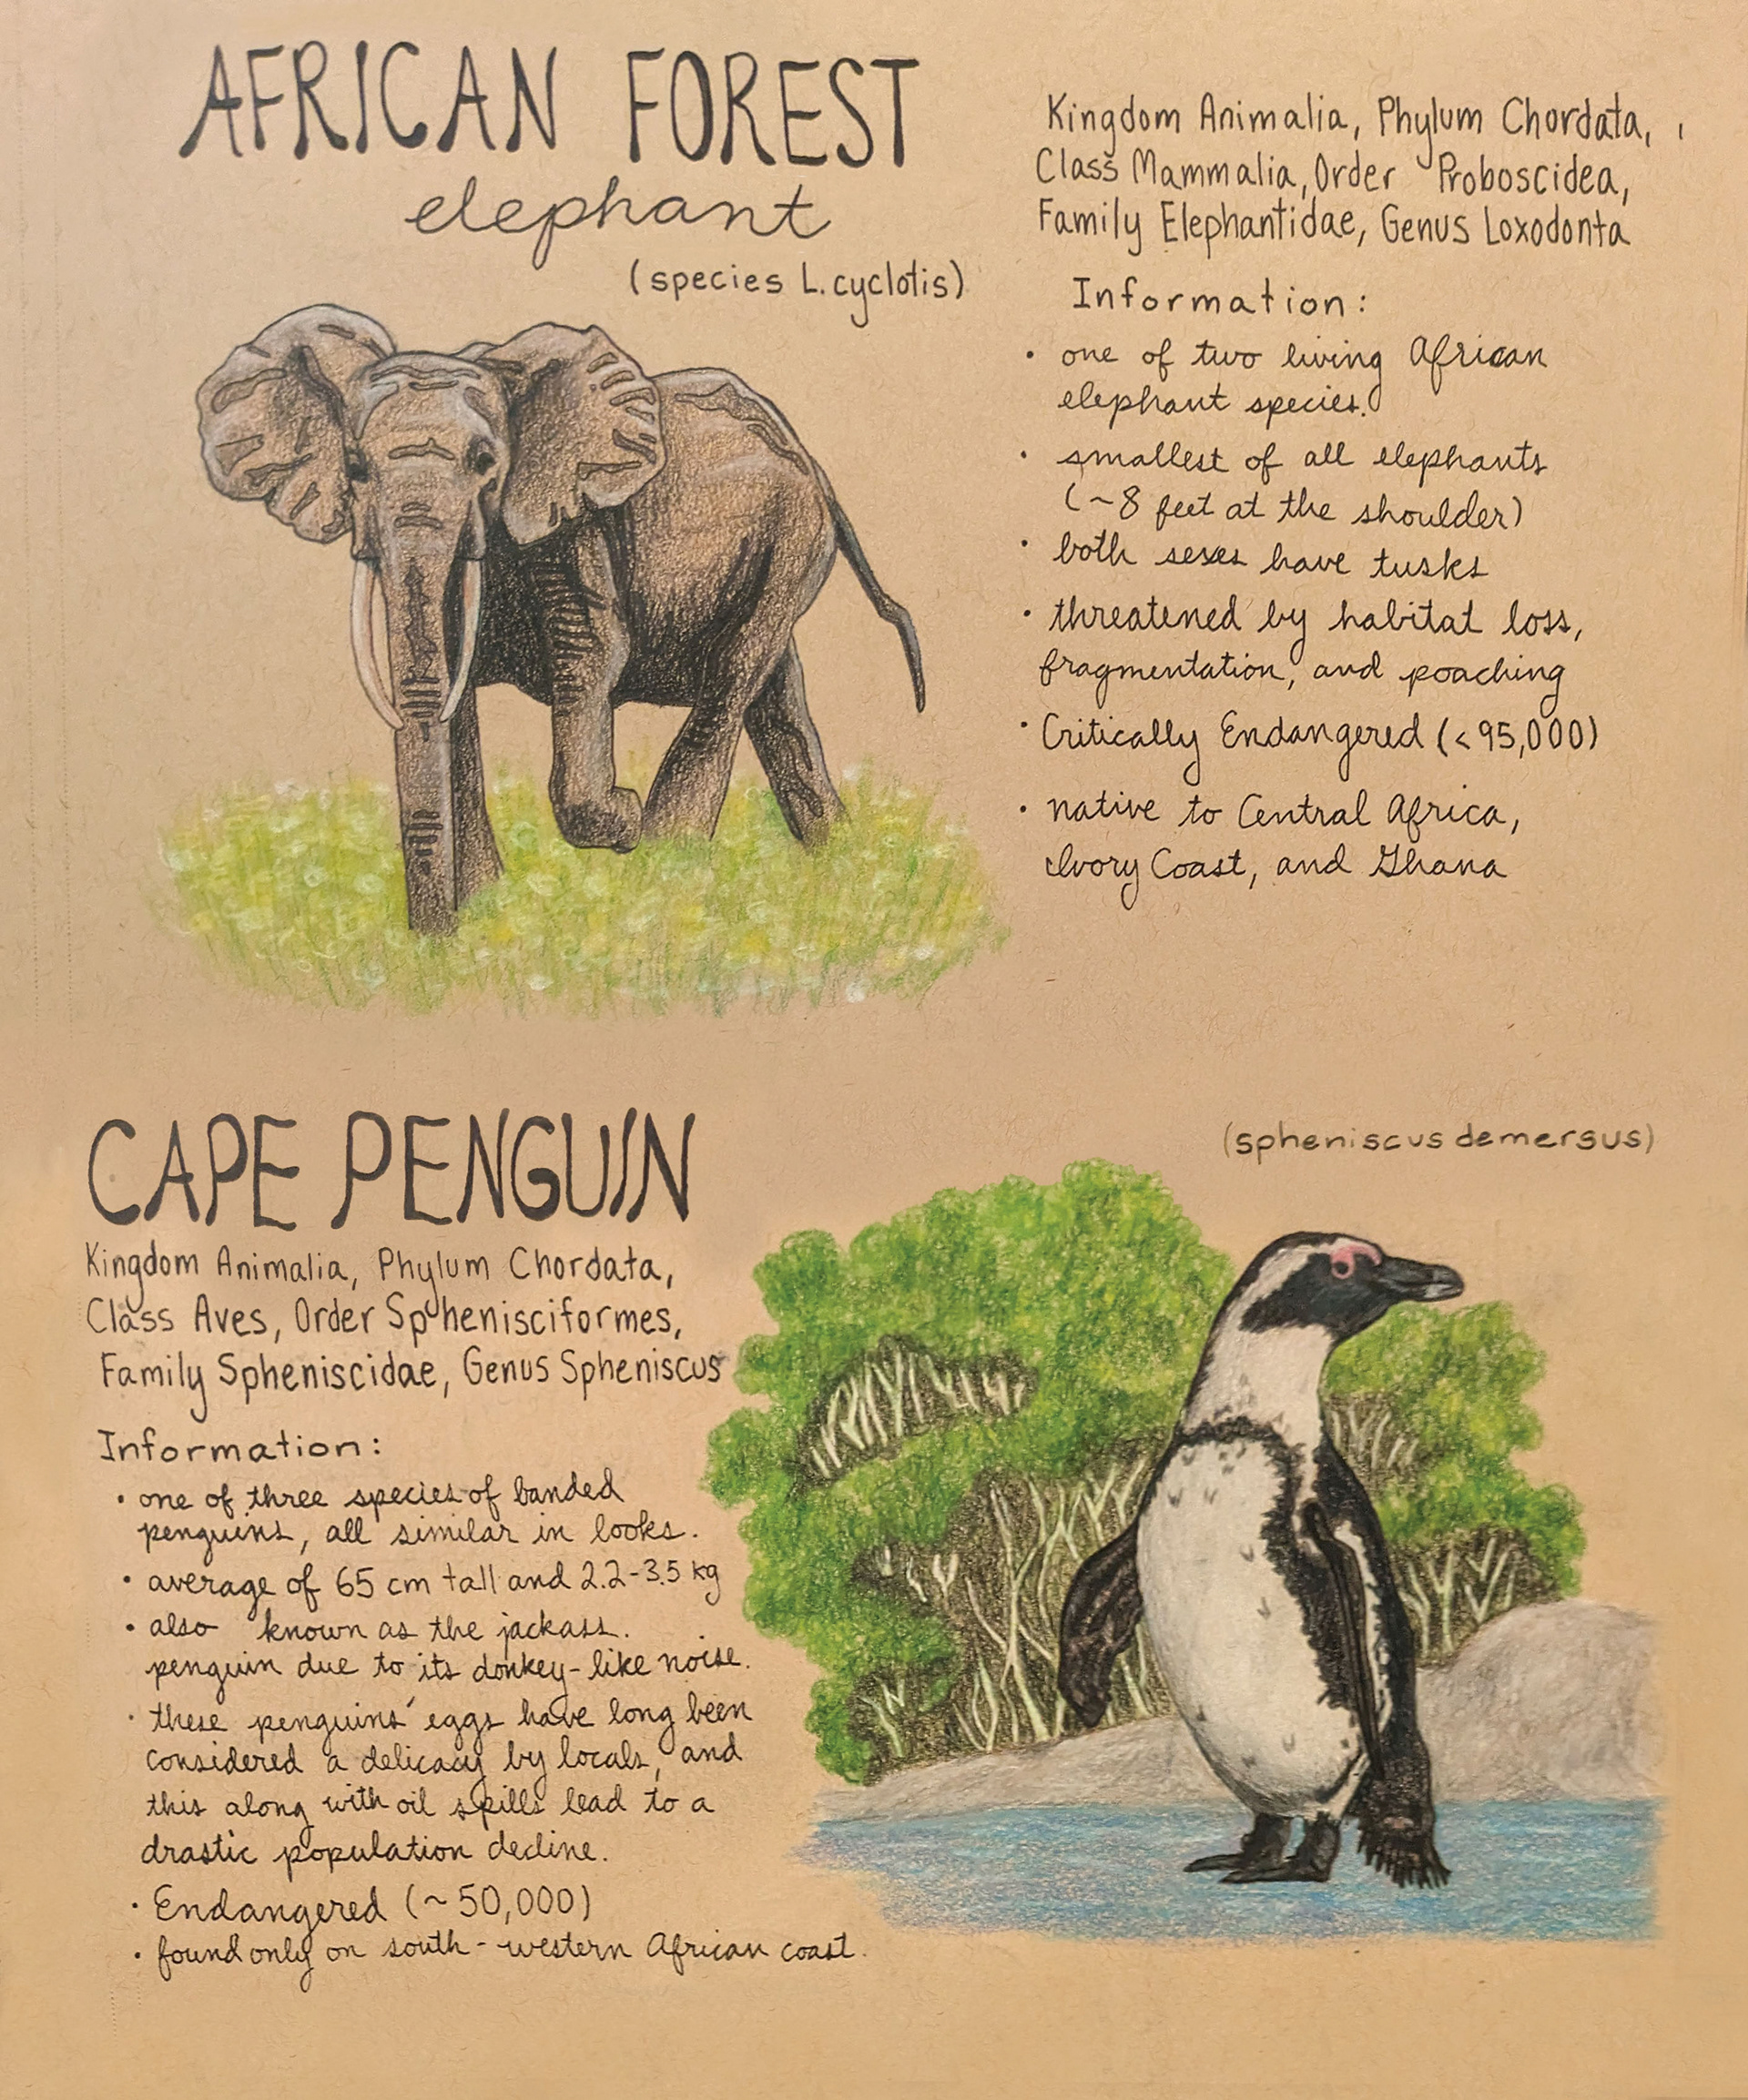 AFRICAN FOREST
elephant
(species L. cyclotis)
Kingdom Animalia, Phylum Chordata,
Class Mammalia, Order Proboscidea,
Family Elephantidae, Genus Loxodonta
Information:
• one of two living African
elephant species.
• smallest of all elephants
(~8 feet at the shoulder)
• both sexes have tusks
• threatened by habitat loss,
fragmentation, and poaching
• Critically Endangered (<95,000)
• native to Central Africa,
Ivory Coast, and Ghana
CAPE PENGUIN
(spheniscus demersus)
Kingdom Animalia, Phylum Chordata,
Class Aves, Order Sphenisciformes,
Family Spheniscidae, Genus Spheniscus
Information:
• one of three species of banded
penguins, all similar in looks.
• average of 65 cm tall and 2.2-3.5 kg
• also known as the jackass.
penguin due to its donkey-like noise.
• these penguins' eggs have long been
considered a delicacy by locals, and
this along with oil spills lead to a
drastic population decline.
• Endangered (~50,000)
• found only on south-western African coast.